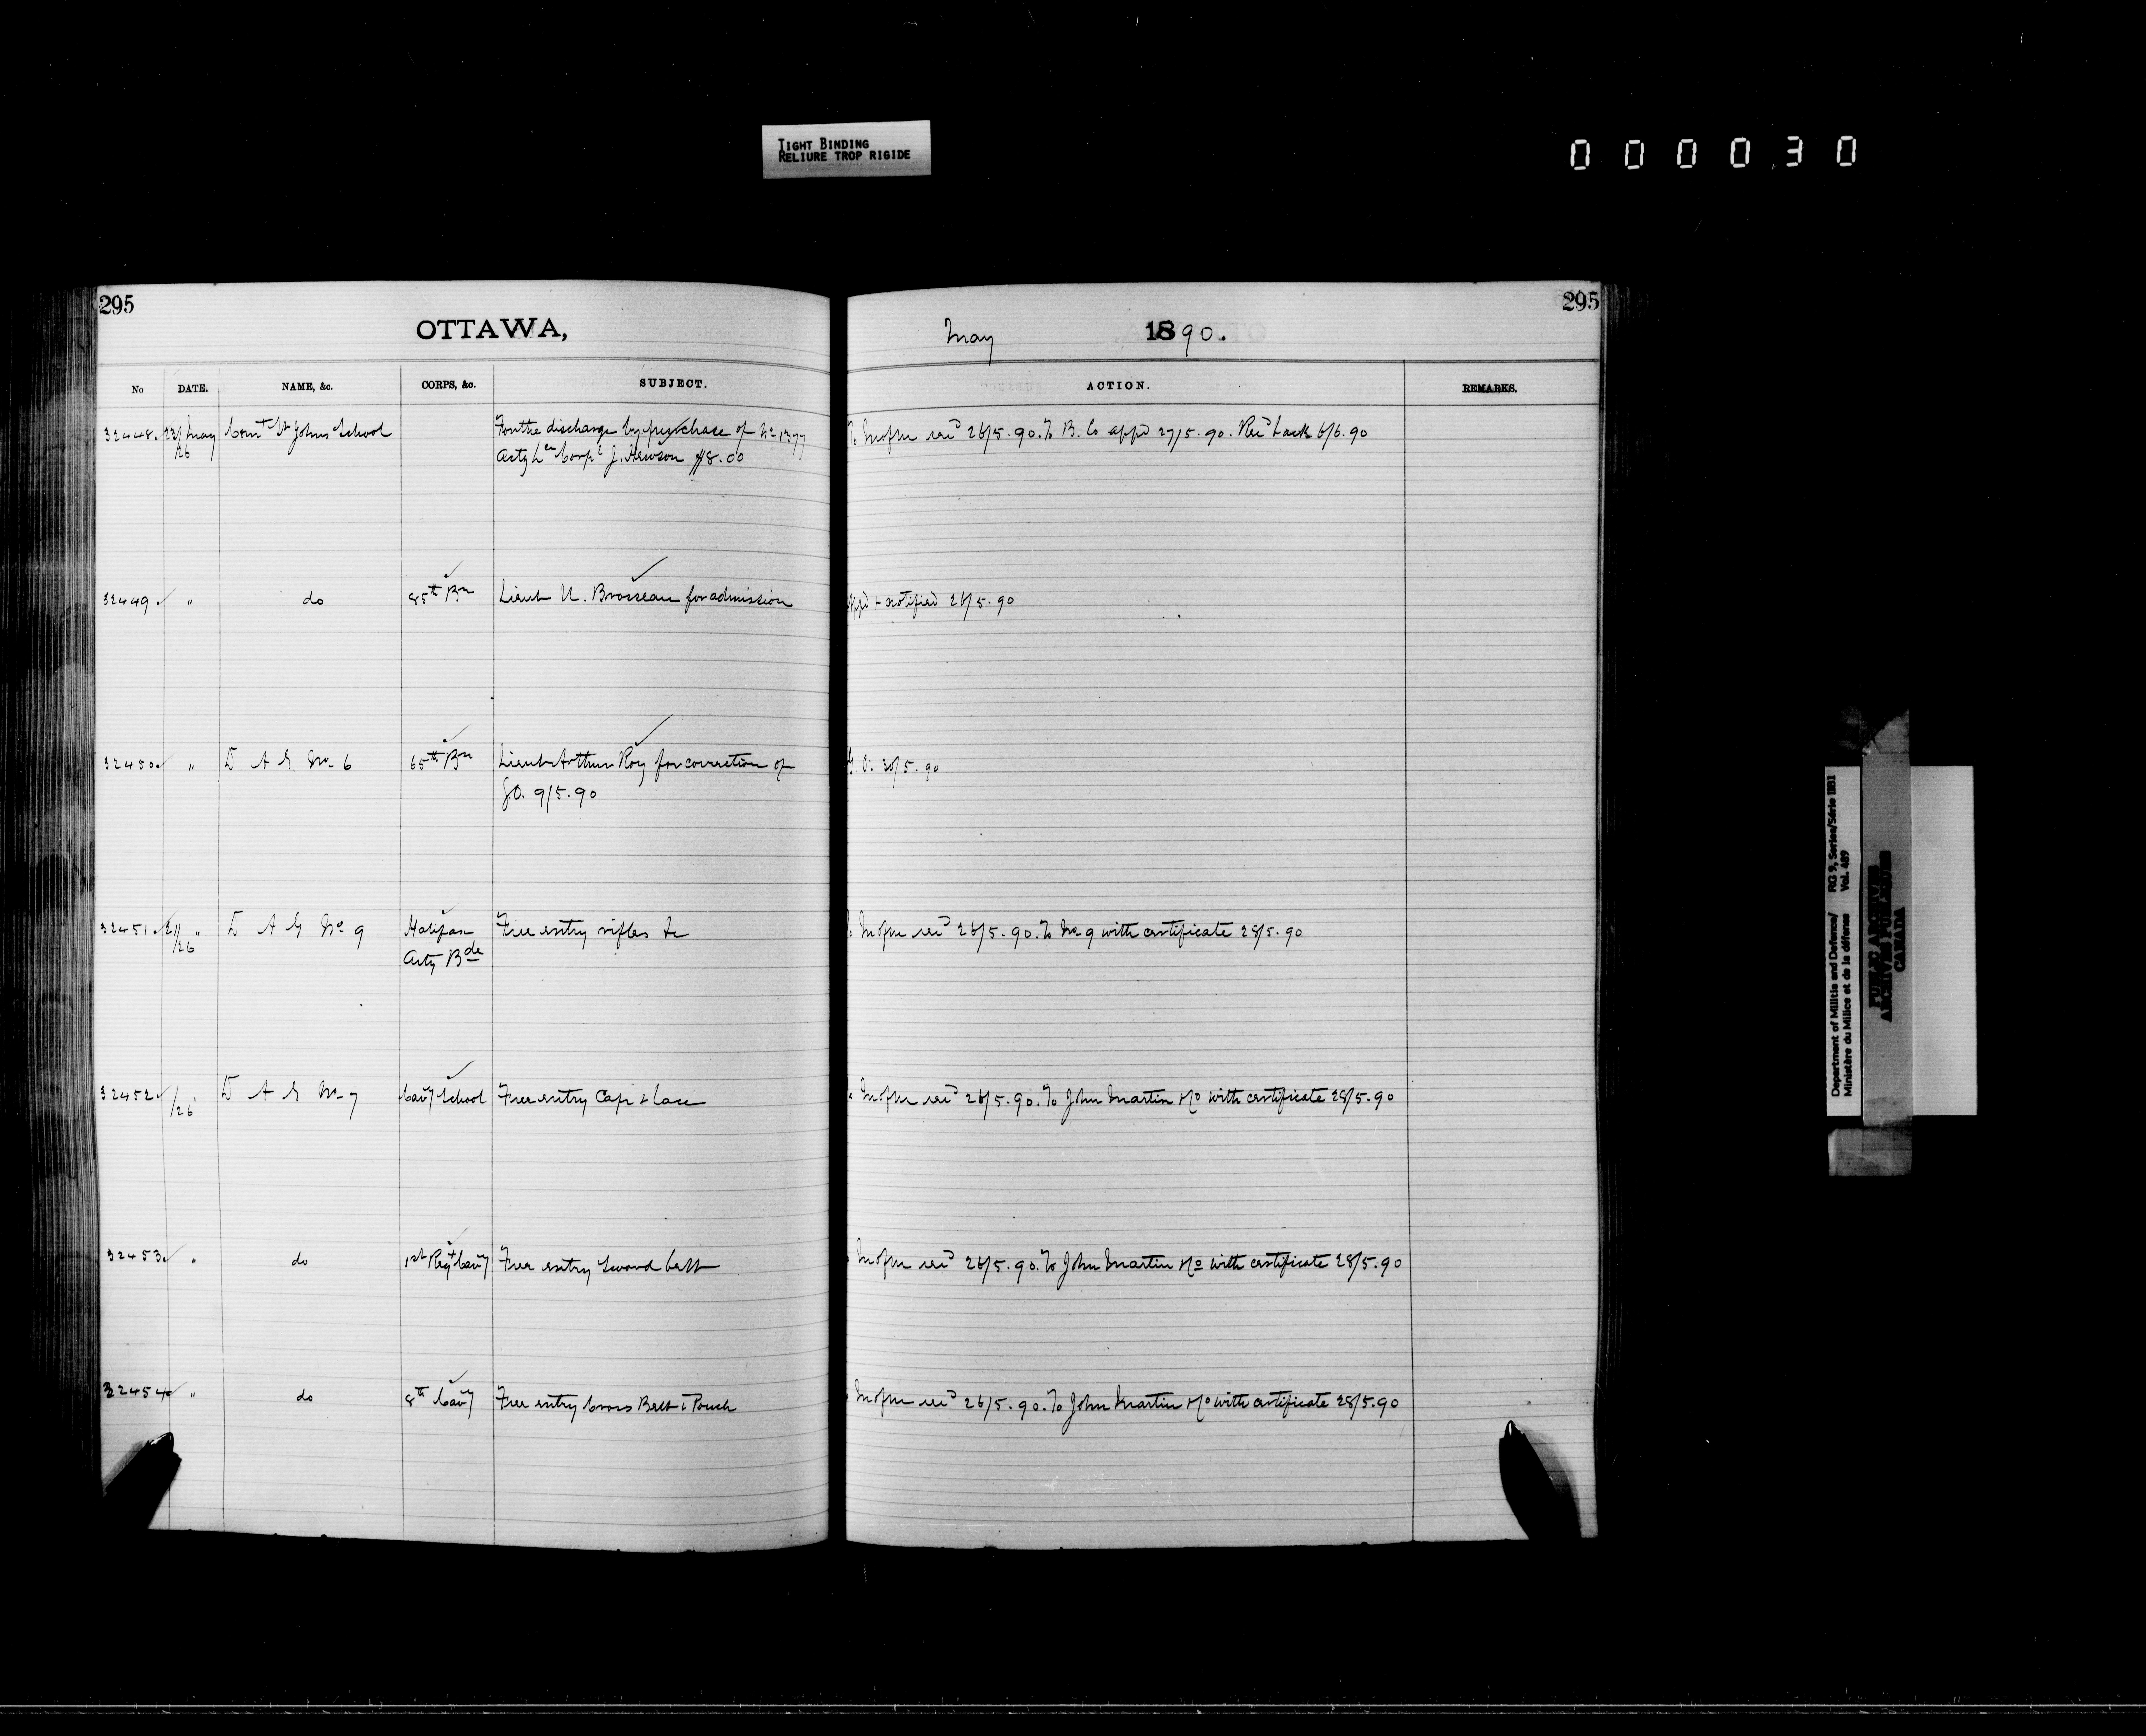 TIGHT BINDING
RELIURE TROP RIGIDE
000030
295
295
OTTAWA,
May 1890.
No DATE. NAME, &c. CORPS, &c. SUBJECT. ACTION. REMARKS.
32448. 23/26 May Comt St Johns School For the discharge by purchase of No 1377 To M of M recd 26/5.90. To B. Co appd 27/5.90. Recd back 6/6.90
Actg Lce Corpl J. Hewson $8.00
32449 " do 85th Bn Lieut U. Brosseau for admission appd & notified 26/5.90
32450 " D A G No 6 65th Bn Lieut Arthur Roy for correction of G. O. 30/5.90
G.O. 9/5.90
32451 21/26 " D A G No 9 Halifax Free entry rifles &c M of M recd 26/5.90. To No 9 with certificate 28/5.90
Arty Bde
32452 /26 " D A G No 7 Cavy School Free entry Cap & lace M of M recd 26/5.90. To John Martin & Co with certificate 28/5.90
32453 " do 1st Regt Cavy Free entry Sword belt M of M recd 26/5.90. To John Martin & Co with certificate 28/5.90
32454 " do 8th Cavy Free entry Cross Belt & Pouch M of M recd 26/5.90. To John Martin & Co with certificate 28/5.90
Department of Militia and Defence/ RG 9, Series/Série IIB1
Ministère du Milice et de la défense Vol. 489
PUBLIC ARCHIVES
ARCHIVES PUBLIQUES
CANADA